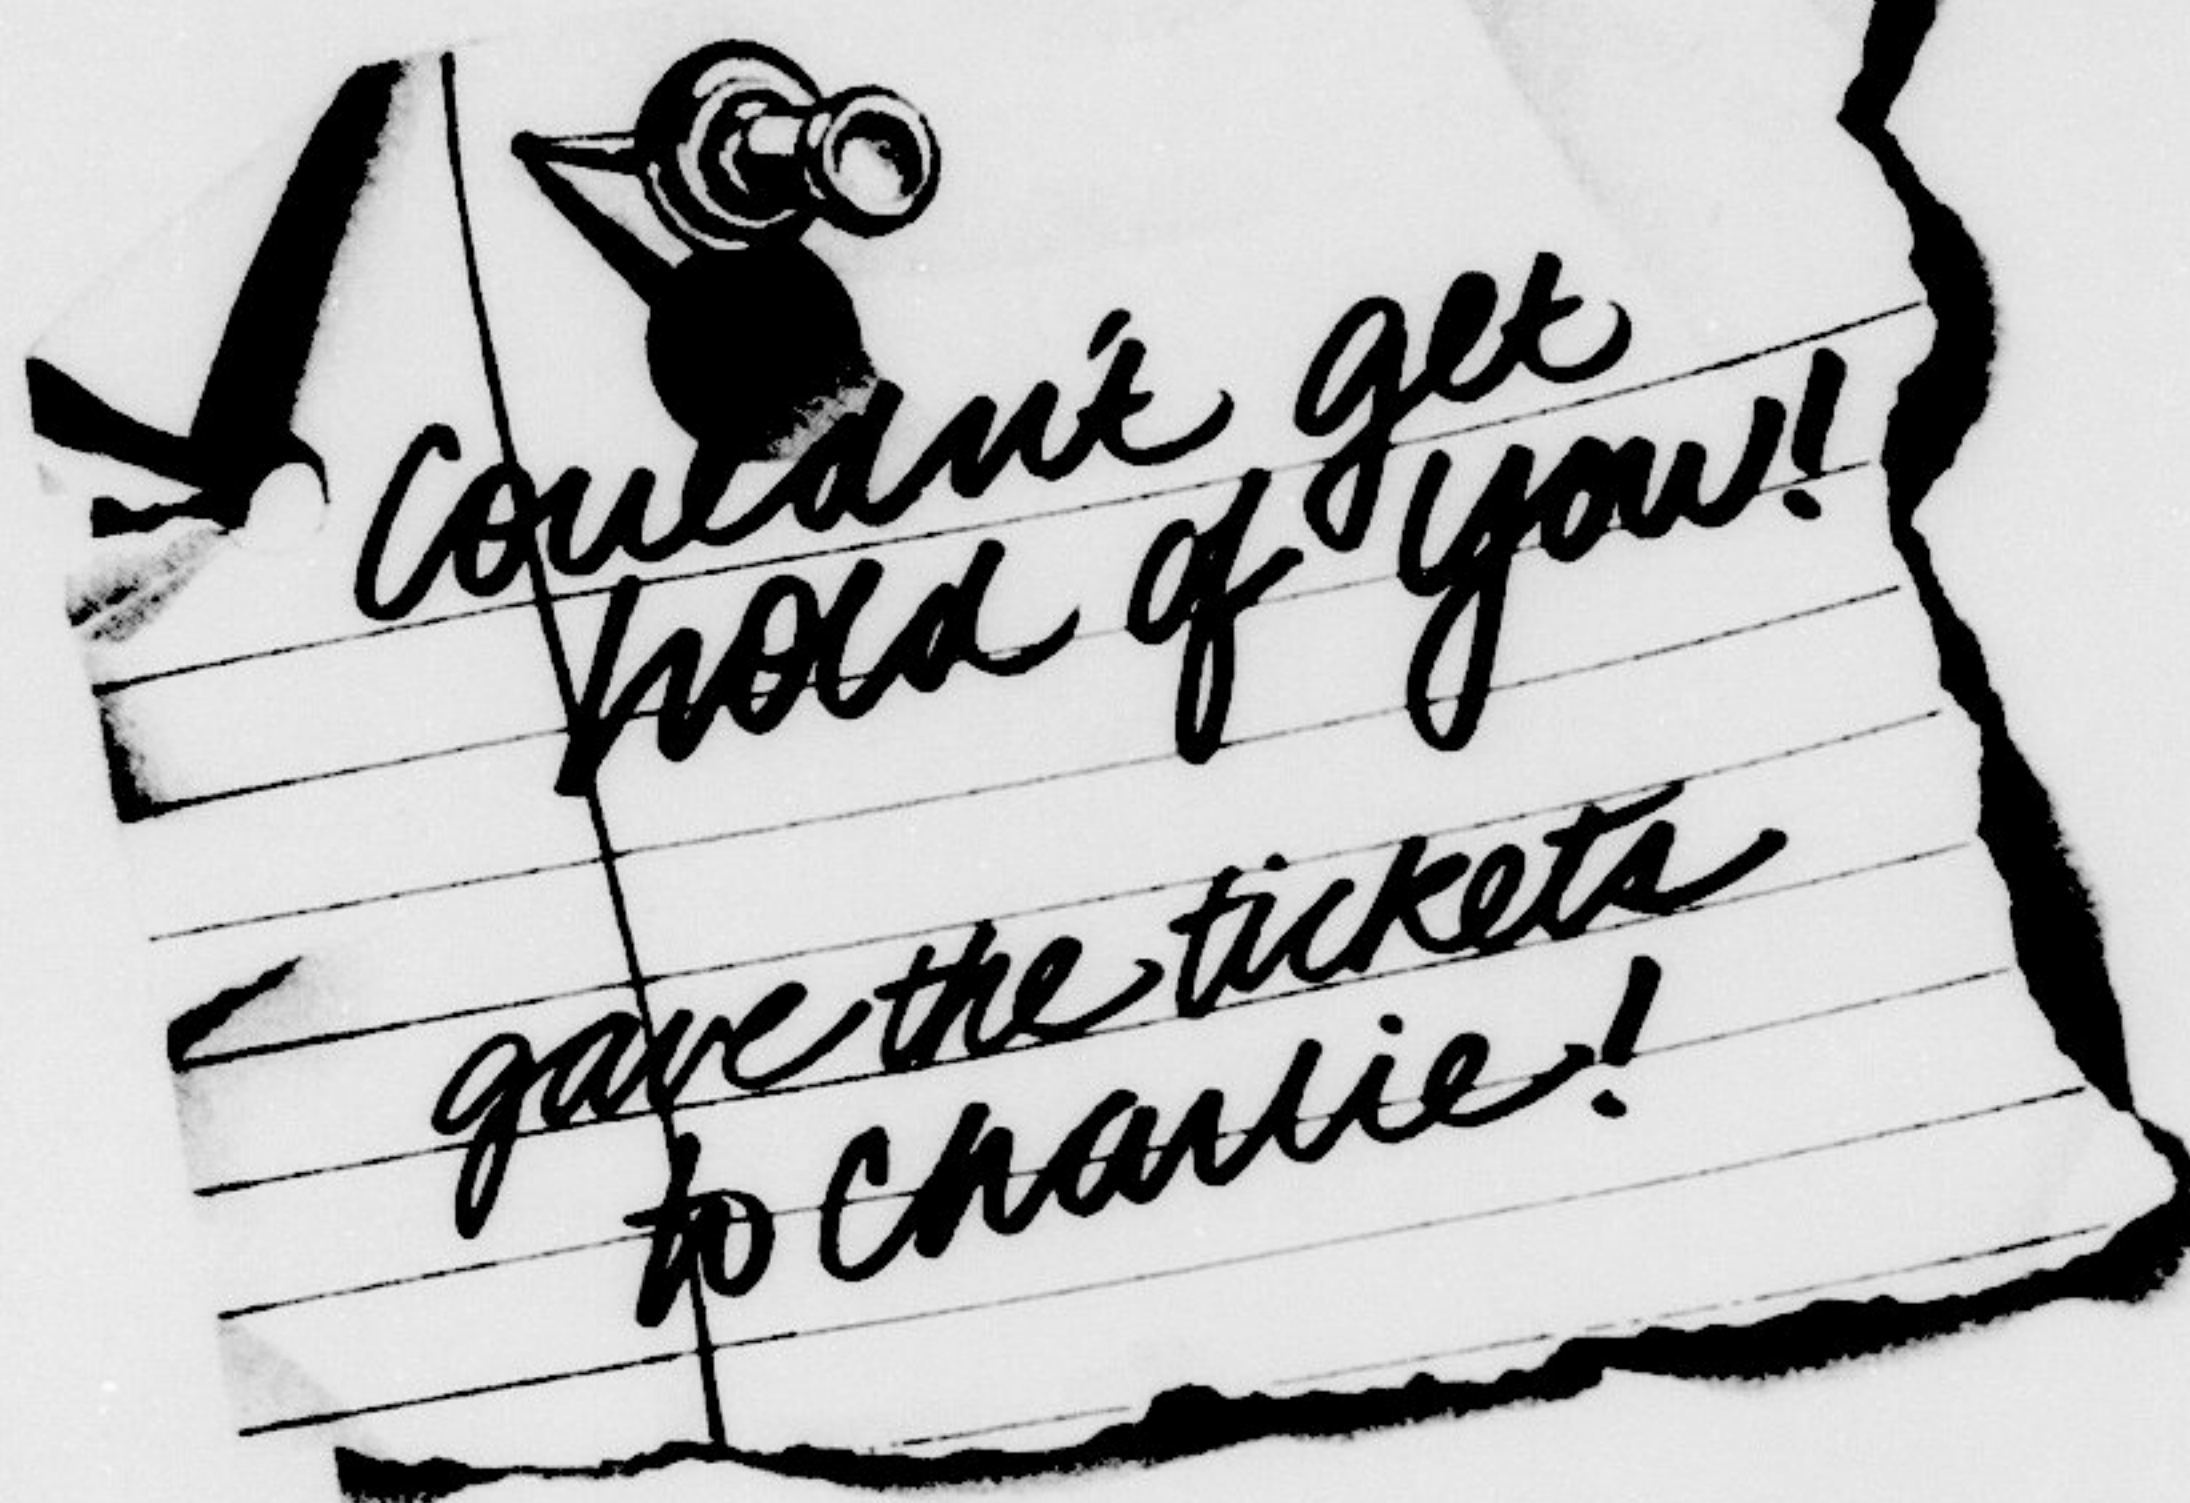 Couldn't get
hold of you!
gave the tickets
to Charlie!